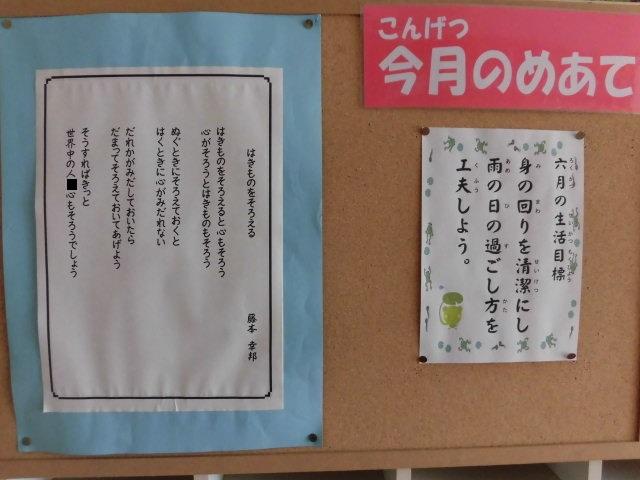 こんげつ
今月のめあて
はきものをそろえる
藤本 幸邦
はきものをそろえると心もそろう
心がそろうとはきものもそろう
ぬぐときにそろえておくと
はくときに心がみだれない
だれかがみだしておいたら
だまってそろえておいてあげよう
そうすればきっと
世界中の人 心もそろうでしょう
六月の生活目標
身の回りを清潔にし
雨の日の過ごし方を
工夫しよう。